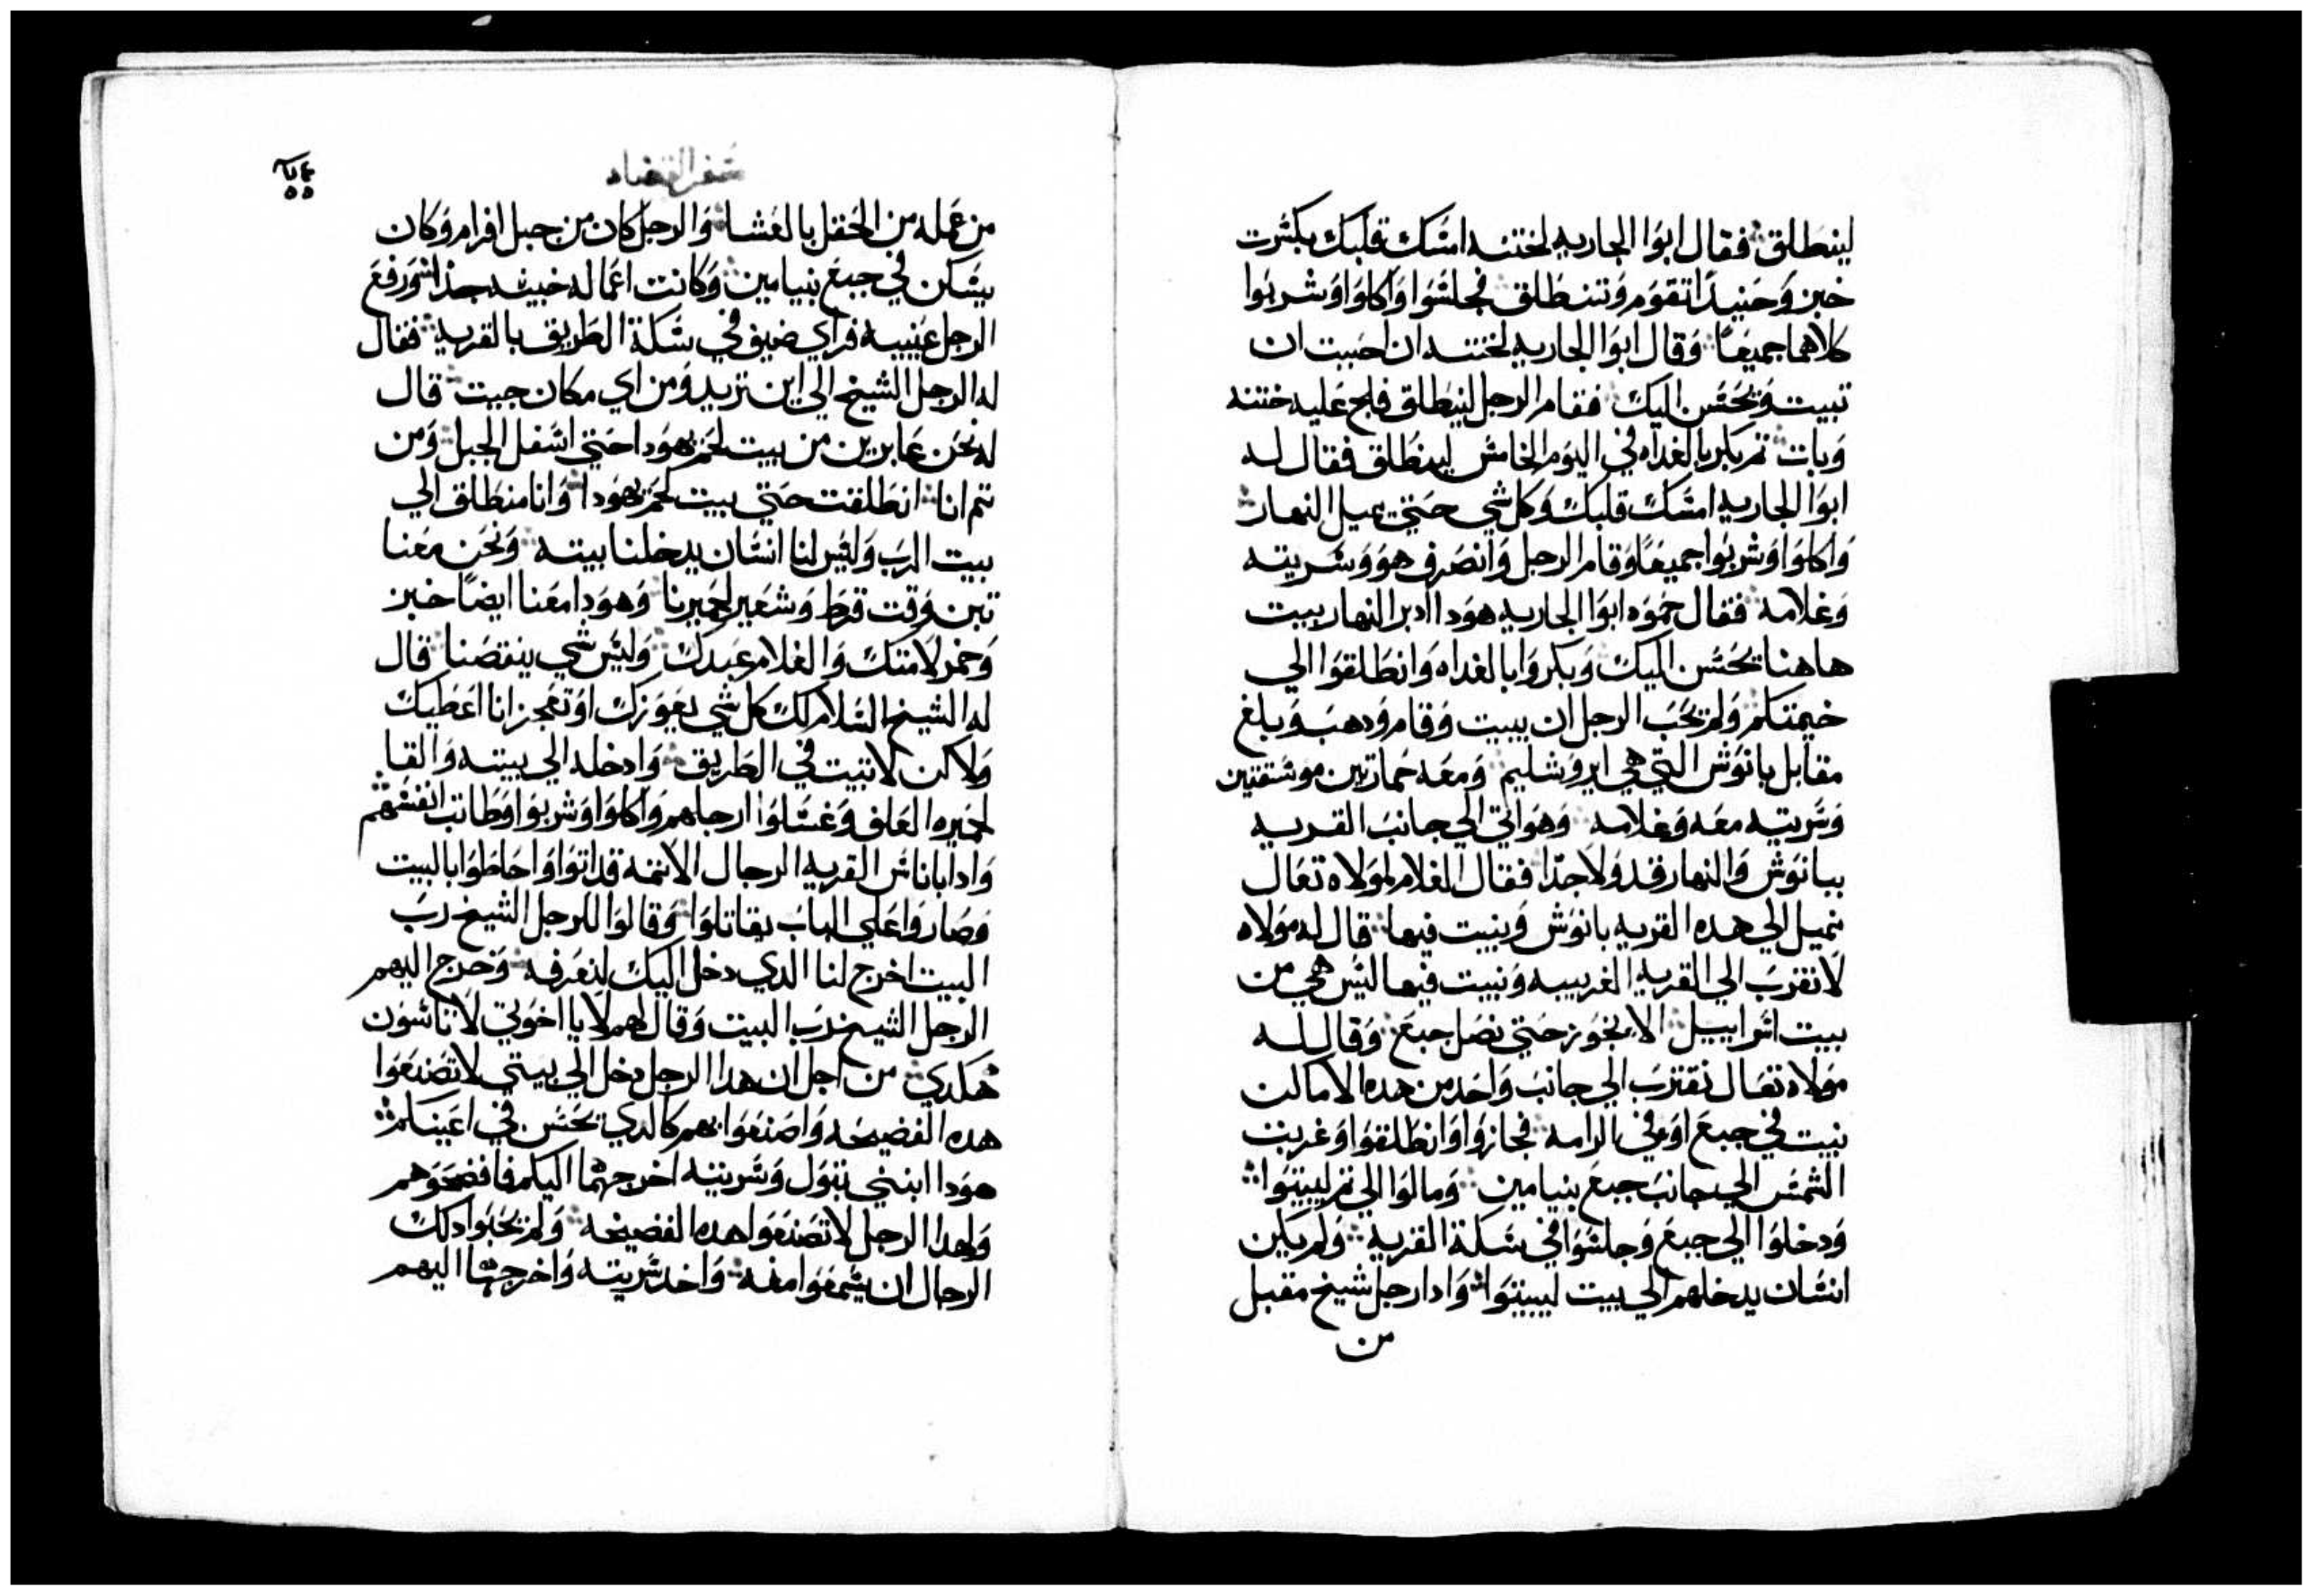 لينطلق فقال ابوا الجاريه لختنه امسك قلبك بكسرت
خبز وحنيدا تقوم وتنطلق فجلسوا واكلوا وشربوا
كلاهما جميعا وقال ابوا الجاريه لختنه ان احببت ان
تبيت ويحسن اليك فقام الرجل لينطلق فلح عليه ختنه
وبات تم بكر بالغداه في اليوم الخامس لينطلق فقال له
ابوا الجاريه امسك قلبك وكل شي حتي يميل النهار
واكلوا وشربوا جميعا وقام الرجل وانصرف هو وسريته
وغلامه فقال حموه ابوا الجاريه هودا ادبر النهار بيت
هاهنا يحسن اليك وبكروا بالغداه وانطلقوا الي
خيمتكم ولم يحب الرجل ان يبيت وقام ودهب وبلغ
مقابل يانوس التي هي ايروشليم ومعه حمارتين موسقتين
وسريته معه وغلامه وهو اتي الي جانب القريه
بيانوس والنهار قد ولا جدا فقال الغلام لمولاه تعال
نميل الي هده القريه يانوس ونبيت فيها قال له مولاه
لا نقرب الي القريه الغريبه ونبيت فيها ليس هي من
بيت اسراييل الا نجوز حتي نصل جبع وقال له
مولاه تعال نقترب الي جانب واحد من هده الاماكن
نبيت في جبع او في الرامه فجازوا وانطلقوا وغربت
الشمس الي جانب جبع بنيامين ومالوا الي تم ليبيتوا
ودخلوا الي جبع وجلسوا في سكة القريه ولم يكن
انسان يدخلهم الي بيت ليبيتوا وادا رجل شيخ مقبل
من
سفر القضاه
من عمله من الحقل بالعشا والرجل كان من جبل افرام وكان
يسكن في جبع بنيامين وكانت اعماله خبيثه جدا ورفع
الرجل عينيه فراي ضيف في سكة الطريق بالقريه فقال
له الرجل الشيخ الي اين تريد ومن اي مكان جيت قال
له نحن عابرين من بيت لحم يهودا حتي اسفل الجبل ومن
تم انا انطلقت حتي بيت لحم يهودا وانا منطلق الي
بيت الرب وليس لنا انسان يدخلنا بيته ونحن معنا
تبن وقت قرط وشعير لحميرنا وهودا معنا ايضا خبز
وخمر لامتك والغلام عبدك وليس شي ينقصنا قال
له الشيخ السلام لك كل شي يعوزك او تعجز انا اعطيك
ولاكن لا تبت في الطريق وادخله الي بيته والقا
لحميره العلف وغسلوا ارجلهم واكلوا وشربوا وطابت انفسهم
وادا باناس القريه الرجال الاتمه قد اتوا واحاطوا بالبيت
وصاروا علي الباب يقاتلوا وقالوا للرجل الشيخ رب
البيت اخرج لنا الدي دخل اليك لنعرفه وخرج اليهم
الرجل الشيخ رب البيت وقال لهم لا يا اخوتي لا تاسون
هكدي من اجل ان هدا الرجل دخل الي بيتي لا تصنعوا
هده الفضيحه واصنعوا بهم كالدي يحسن في اعينكم
هودا ابنتي بتول وسريته اخرجهما اليكم فافضحوهم
ولهدا الرجل لا تصنعوا هده الفضيحه ولم يحبوا دلك
الرجال ان يسمعوا منه واخد سريته واخرجها اليهم